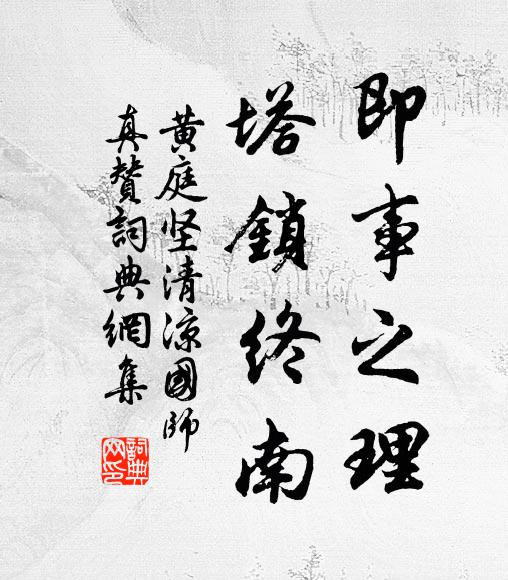 即事之理
塔鎖終南
黄庭坚清凉國師
真贊詞典網集
詞典网印